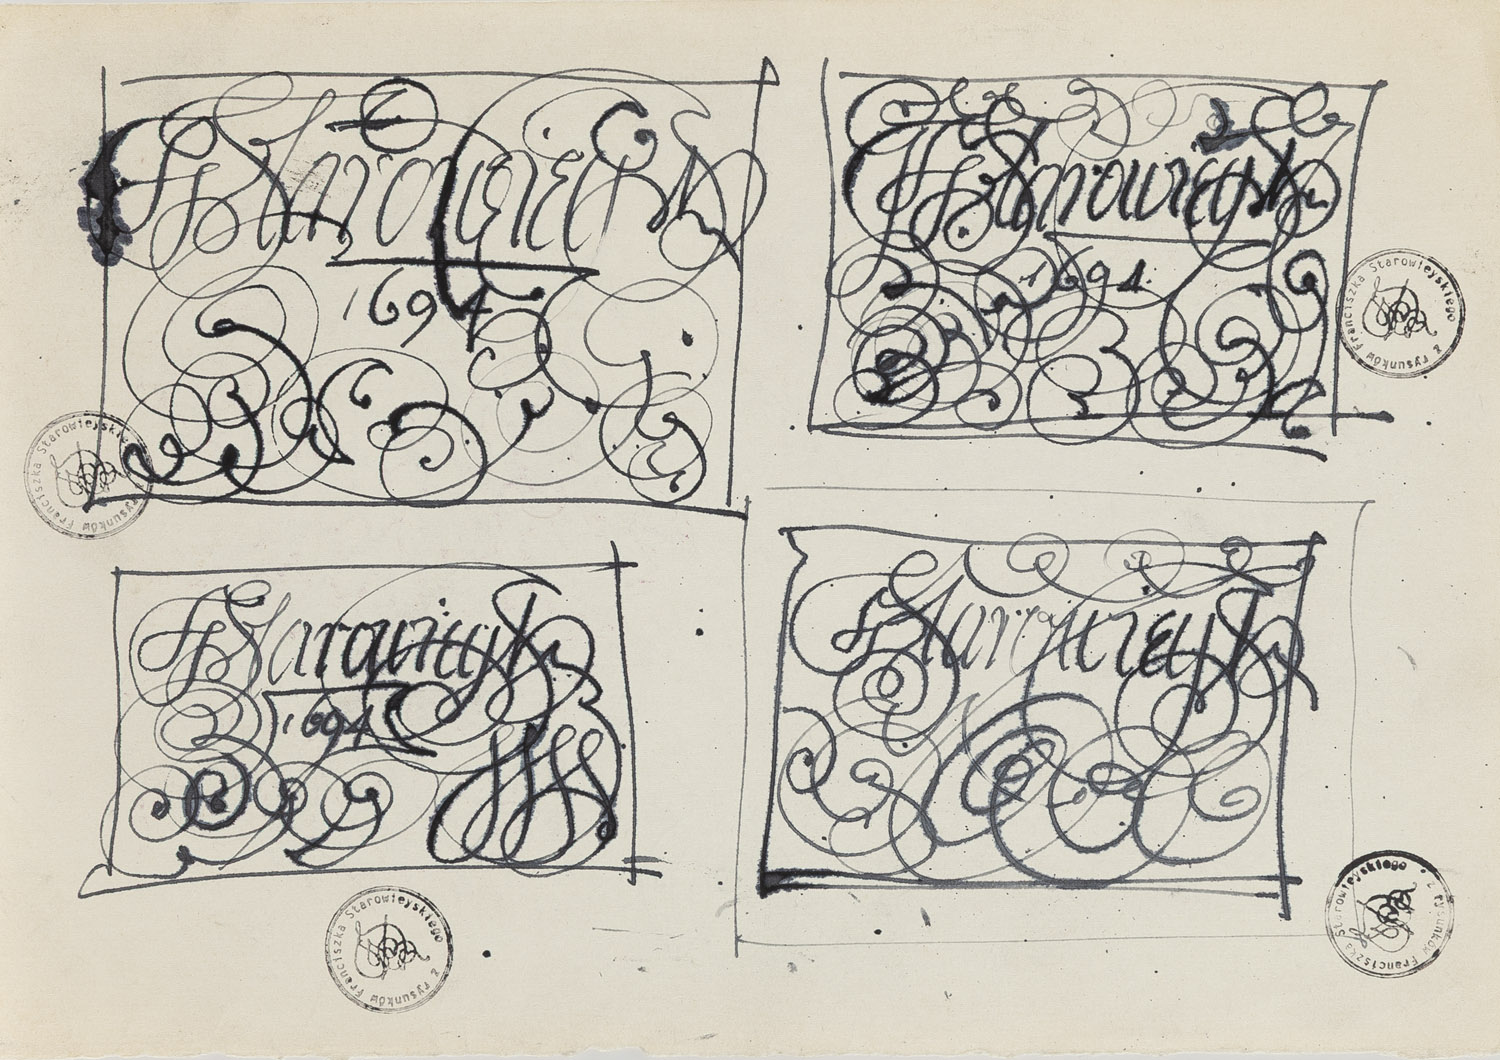 F. Starowieyski
1694
F. Starowieyski
1694
z rysunków Franciszka Starowieyskiego
z rysunków Franciszka Starowieyskiego
F. Starowieyski
1694
F. Starowieyski
z rysunków Franciszka Starowieyskiego
z rysunków Franciszka Starowieyskiego